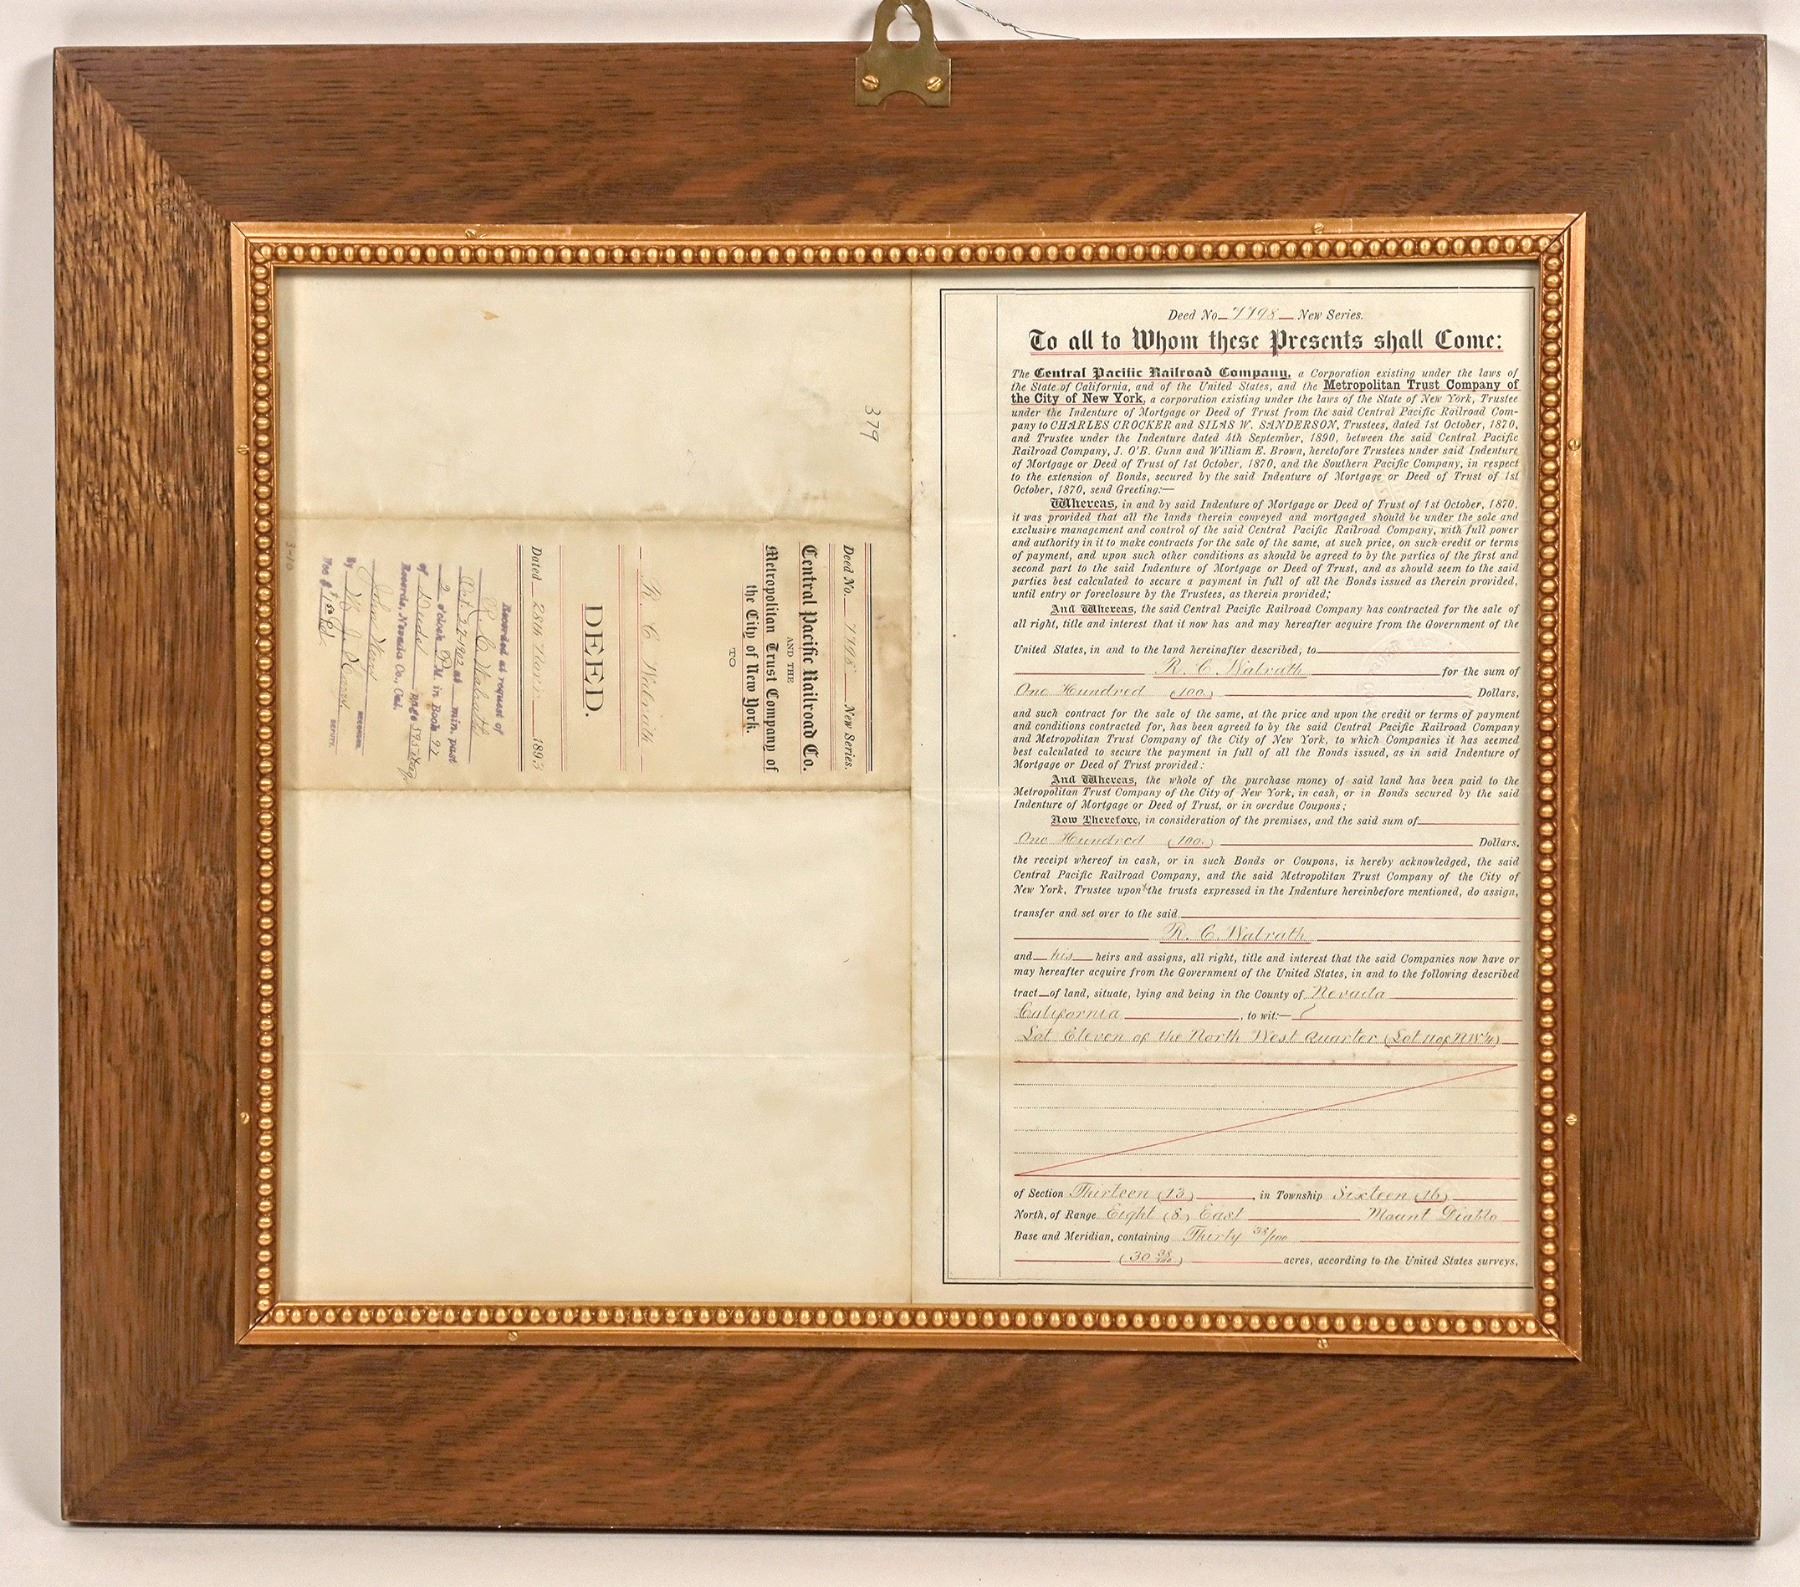 379
Deed No. 7798 New Series.
Central Pacific Railroad Co.
AND THE
Metropolitan Trust Company of
the City of New York.
TO
R. C. Walrath
DEED.
Dated 28th Novr. 1893
Recorded at request of
R. C. Walrath
Oct 27 1902 at min. past
2 o'clock P.M. in Book 97
of Deeds page 575 &seq
Records, Nevada Co., Cal.
RECORDER.
By
DEPUTY.
Fee $
3-10
Deed No 7798 New Series.
To all to Whom these Presents shall Come:
The Central Pacific Railroad Company, a Corporation existing under the laws of
the State of California, and of the United States, and the Metropolitan Trust Company of
the City of New York, a corporation existing under the laws of the State of New York, Trustee
under the Indenture of Mortgage or Deed of Trust from the said Central Pacific Railroad Com-
pany to CHARLES CROCKER and SILAS W. SANDERSON, Trustees, dated 1st October, 1870,
and Trustee under the Indenture dated 4th September, 1890, between the said Central Pacific
Railroad Company, J. O'B. Gunn and William E. Brown, heretofore Trustees under said Indenture
of Mortgage or Deed of Trust of 1st October, 1870, and the Southern Pacific Company, in respect
to the extension of Bonds, secured by the said Indenture of Mortgage or Deed of Trust of 1st
October, 1870, send Greeting:—
Whereas, in and by said Indenture of Mortgage or Deed of Trust of 1st October, 1870,
it was provided that all the lands therein conveyed and mortgaged should be under the sole and
exclusive management and control of the said Central Pacific Railroad Company, with full power
and authority in it to make contracts for the sale of the same, at such price, on such credit or terms
of payment, and upon such other conditions as should be agreed to by the parties of the first and
second part to the said Indenture of Mortgage or Deed of Trust, and as should seem to the said
parties best calculated to secure a payment in full of all the Bonds issued as therein provided,
until entry or foreclosure by the Trustees, as therein provided;
And Whereas, the said Central Pacific Railroad Company has contracted for the sale of
all right, title and interest that it now has and may hereafter acquire from the Government of the
United States, in and to the land hereinafter described, to
R. C. Walrath for the sum of
One Hundred (100) Dollars,
and such contract for the sale of the same, at the price and upon the credit or terms of payment
and conditions contracted for, has been agreed to by the said Central Pacific Railroad Company
and Metropolitan Trust Company of the City of New York, to which Companies it has seemed
best calculated to secure the payment in full of all the Bonds issued, as in said Indenture of
Mortgage or Deed of Trust provided:
And Whereas, the whole of the purchase money of said land has been paid to the
Metropolitan Trust Company of the City of New York, in cash, or in Bonds secured by the said
Indenture of Mortgage or Deed of Trust, or in overdue Coupons;
Now Therefore, in consideration of the premises, and the said sum of
One Hundred (100.) Dollars,
the receipt whereof in cash, or in such Bonds or Coupons, is hereby acknowledged, the said
Central Pacific Railroad Company, and the said Metropolitan Trust Company of the City of
New York, Trustee upon the trusts expressed in the Indenture hereinbefore mentioned, do assign,
transfer and set over to the said
R. C. Walrath
and his heirs and assigns, all right, title and interest that the said Companies now have or
may hereafter acquire from the Government of the United States, in and to the following described
tract of land, situate, lying and being in the County of Nevada
California, to wit:—
Lot Eleven of the North West Quarter (Lot 11 of N.W.¼)
of Section Thirteen (13), in Township Sixteen (16)
North, of Range Eight (8) East Mount Diablo
Base and Meridian, containing Thirty 38/100
(30 38/100) acres, according to the United States surveys,